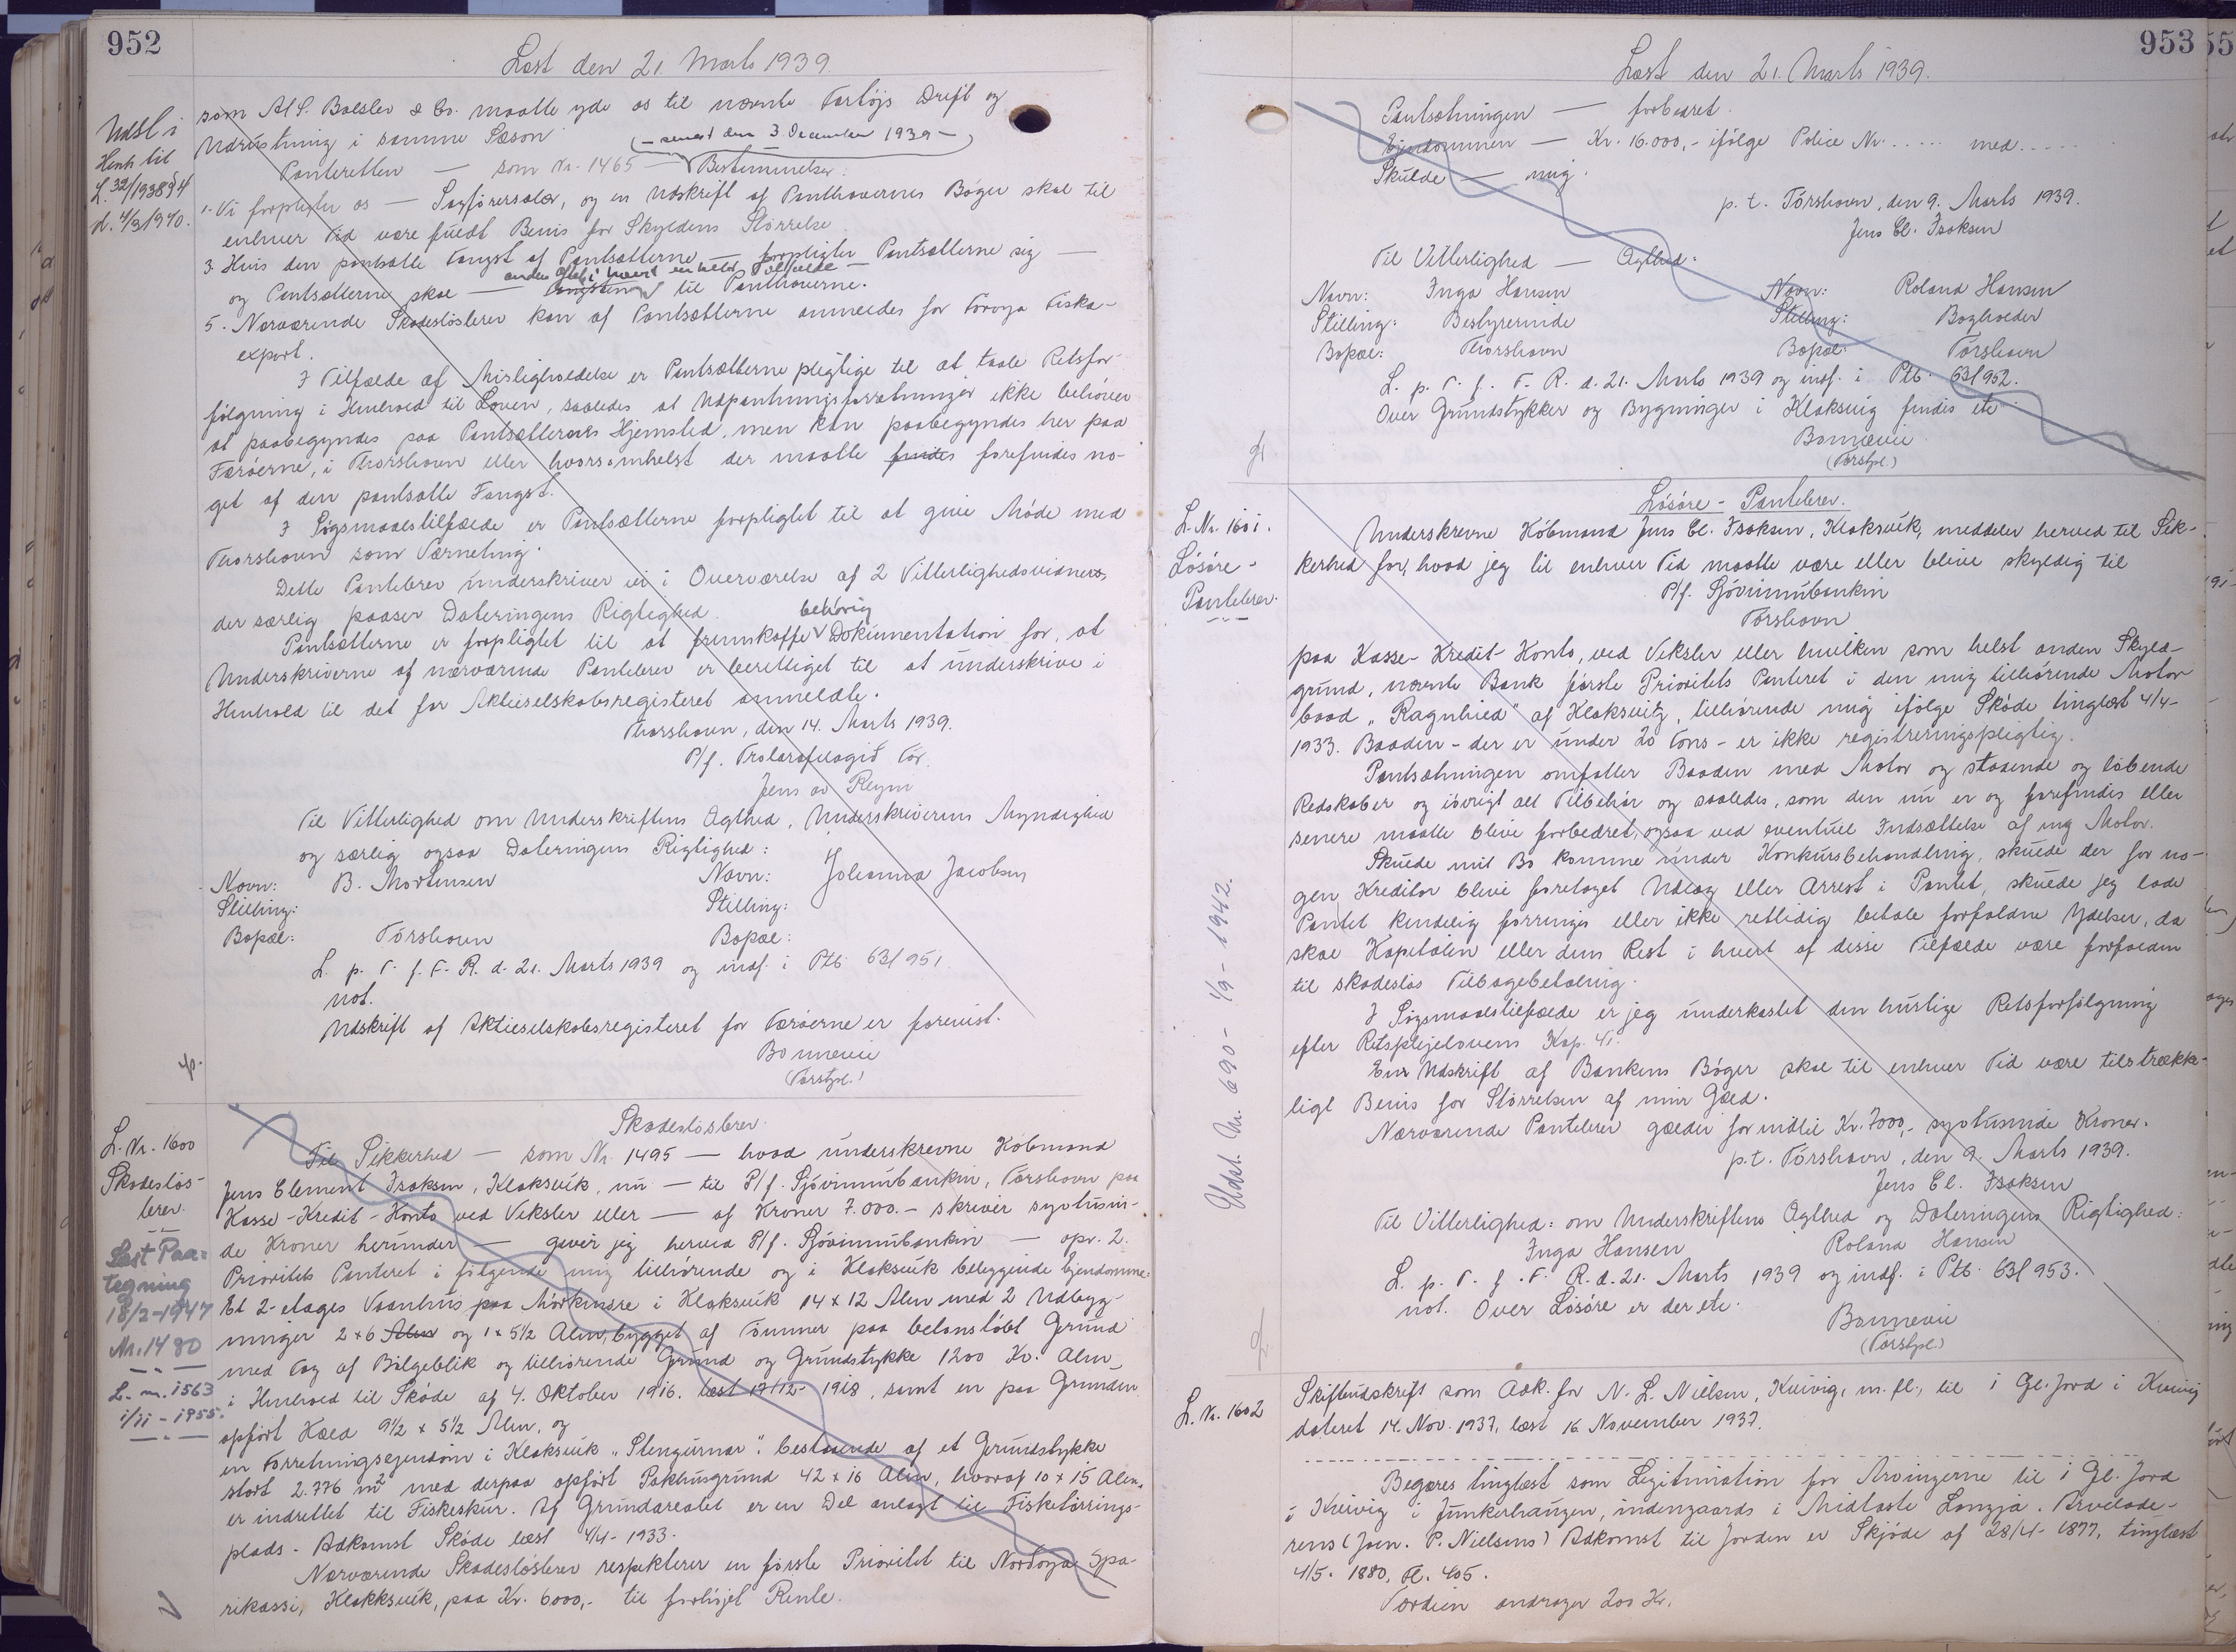 952
Læst den 21. Marts 1939.
som A/S. Balslev & Co. maatte yde os til nævnte Fartøjs Drift og
Udrustning i samme Sæson
(- senest den 3 December 1939 -)
Panteretten — som Nr. 1465 — Bestemmelser:
1. Vi forpligter os — Sagførersalær, og en Udskrift af Panthavernes Bøger skal til
enhver Tid være fuldt Bevis for Skyldens Størrelse
3. Hvis den pantsatte Fangst af Pantsætterne — forpligter Pantsætterne sig —
og Pantsætterne skal — i hvert enkelt Tilfælde — til Panthaverne.
5. Nærværende Skadesløsbrev kan af Pantsætterne anmeldes for Føroya Fiska-
export.
I Tilfælde af Misligholdelse er Pantsætterne pligtige til at taale Retsfor-
følgning i Henhold til Loven, saaledes at Udpantningsforretninger ikke behøver
at paabegyndes paa Pantsætternes Hjemsted, men kan paabegyndes her paa
Færøerne, i Thorshavn eller hvorsomhelst der maatte findes forefindes no-
get af den pantsatte Fangst.
I Søgsmaalstilfælde er Pantsætterne forpligtet til at give Møde med
Thorshavn som Værneting.
Dette Pantebrev underskriver vi i Overværelse af 2 Vitterlighedsvidner,
der særlig paaser Dateringens Rigtighed.
Pantsætterne er forpligtet til at fremskaffe behörig Dokumentation for, at
Underskriverne af nærværende Pantebrev er berettiget til at underskrive i
Henhold til det for Aktieselskabsregisteret anmeldte.
Thorshavn, den 14. Marts 1939.
P/f. Trolarafelagið Tór.
Jens av Reyni
Til Vitterlighed om Underskriftens Ægthed, Underskriverens Myndighed
og særlig ogsaa Dateringens Rigtighed:
Navn: B. Mortensen Navn: Johanna Jacobsen
Stilling: Stilling:
Bopæl: Tórshavn Bopæl:
L. p. T. f. F. R. d. 21. Marts 1939 og indf. i Ptb. 63/951
not.
Udskrift af Aktieselskabsregisteret for Færøerne er forevist.
Bonnevie
(Torstpl.)
Udsl. i
Henh. til
L. 32/1938 § 4
d. 4/3 1940.
L. Nr. 1600
Skadesløs-
brev.
Læst Paa-
tegning
18/2-1947
Nr. 1480
L. nr. 1563
1/11-1955.
Skadesløsbrev.
Til Sikkerhed — som Nr. 1495 — hvad underskrevne Købmand
Jens Clement Isaksen, Klaksvík, nu — til P/f. Sjóvinnubankin, Tórshavn paa
Kasse-Kredit-Konto ved Veksler eller — af Kroner 7.000.- skriver syvtusin-
de Kroner herunder — giver jeg herved P/f. Sjóvinnubankin — opr. 2.
Prioritets Panteret i følgende mig tilhørende og i Klaksvík beliggende Ejendomme:
Et 2-etages Vaanhus paa Mørkmsre i Klaksvík 14 x 12 Alen med 2 Udbyg-
ninger 2 x 6 Alen og 1 x 5½ Alen, bygget af Tømmer paa betonstøbt Grund
med Tag af Bølgeblik og tilhørende Grund og Grundstykke 1200 Kv. Alen,
i Henhold til Skøde af 4. Oktober 1916. læst 17/12- 1918, samt en paa Grunden
opført Hæld 9½ x 5½ Alen, og
en Forretningsejendom i Klaksvík "Stengurnar". bestaaende af et Grundstykke
stort 2.776 m² med derpaa opført Pakhusgrund 42 x 16 Alen, hvoraf 10 x 15 Alen,
er indrettet til Fiskeskur. Af Grundarealet er en Del anlagt til Fisketørrings-
plads. Adkomst Skøde læst 4/4- 1933.
Nærværende Skadesløsbrev respekterer en første Prioritet til Nordoya Spa-
rikassi, Klakksvík, paa Kr. 6000,- til forhøjet Rente.
953
Læst den 21. Marts 1939.
Pantsætningen — forbedret.
Ejendommen — Kr. 16.000,- ifølge Police Nr. ..... med .....
Skulde — mig.
p. t. Tórshavn, den 9. Marts 1939.
Jens Cl. Isaksen
Til Vitterlighed — Ægthed:
Navn: Inga Hansen Navn: Roland Hansen
Stilling: Bestyrerinde Stilling: Bogholder
Bopæl: Thorshavn Bopæl: Tórshavn
L. p. T. f. F. R. d. 21. Marts 1939 og indf. i Ptb. 63/952.
Over Grundstykker og Bygninger i Klaksvig findes etc.
Bonnevie
(Torstpl.)
L. Nr. 1601.
Løsøre-
Pantebrev.
Udsl. Nr. 690 - 1/9 - 1942.
Løsøre-Pantebrev.
Underskrevne Købmand Jens Cl. Isaksen, Klaksvík, meddeler herved til Sik-
kerhed for, hvad jeg til enhver Tid maatte være eller blive skyldig til
P/f. Sjóvinnubankin
Tórshavn
paa Kasse-Kredit-Konto, ved Veksler eller hvilken som helst anden Skyld-
grund, nævnte Bank første Prioritets Panteret i den mig tilhørende Motor
baad "Ragnhild" af Klaksvig, tilhørende mig ifølge Skøde tinglæst 4/4-
1933. Baaden - der er under 20 Tons - er ikke registreringspligtig.
Pantsætningen omfatter Baaden med Motor og staaende og løbende
Redskaber og iøvrigt alt Tilbehør og saaledes, som den nu er og forefindes eller
senere maatte blive forbedret, ogsaa ved eventuel Indsættelse af ny Motor.
Skulde mit Bo komme under Konkursbehandling, skulde der for no-
gen Kreditor blive foretaget Udlæg eller Arrest i Pantet, skulde jeg lade
Pantet kendelig forringes eller ikke rettidig betale forfaldne Ydelser, da
skal Kapitalen eller dens Rest i hvert af disse Tilfælde være forfalden
til skadesløs Tilbagebetaling.
I Søgsmaalstilfælde er jeg underkastet den hurtige Retsforfølgning
efter Retsplejelovens Kap. 41.
En Udskrift af Bankens Bøger skal til enhver Tid være tilstrække-
ligt Bevis for Størrelsen af min Gæld.
Nærværende Pantebrev gælder for indtil Kr. 7000,- syvtusinde Kroner.
p.t. Tórshavn, den 9. Marts 1939.
Jens Cl. Isaksen
Til Vitterlighed: om Underskriftens Ægthed og Dateringens Rigtighed:
Inga Hansen Roland Hansen
L. p. T. f. F. R. d. 21. Marts 1939 og indf. i Ptb. 63/953.
not. Over Løsøre er der etc.
Bonnevie
(Torstpl.)
L. Nr. 1602
Skifteudskrift som Adk. for N. L. Nielsen, Kvivig, m. fl., til 1 Gl. Jord i Kvivig
dateret 14. Nov. 1937, læst 16. November 1937.
Begæres tinglæst som Legitimation for Arvingerne til 1 Gl. Jord
i Kvivig i Junkerhaugen, indengaards i Midtaste Langja. Arvelade-
rens (Joen. P. Nielsens) Adkomst til Jorden er Skjøde af 28/4- 1877, tinglæst
4/5. 1880, Fl. 405.
Værdien andrager 200 Kr.